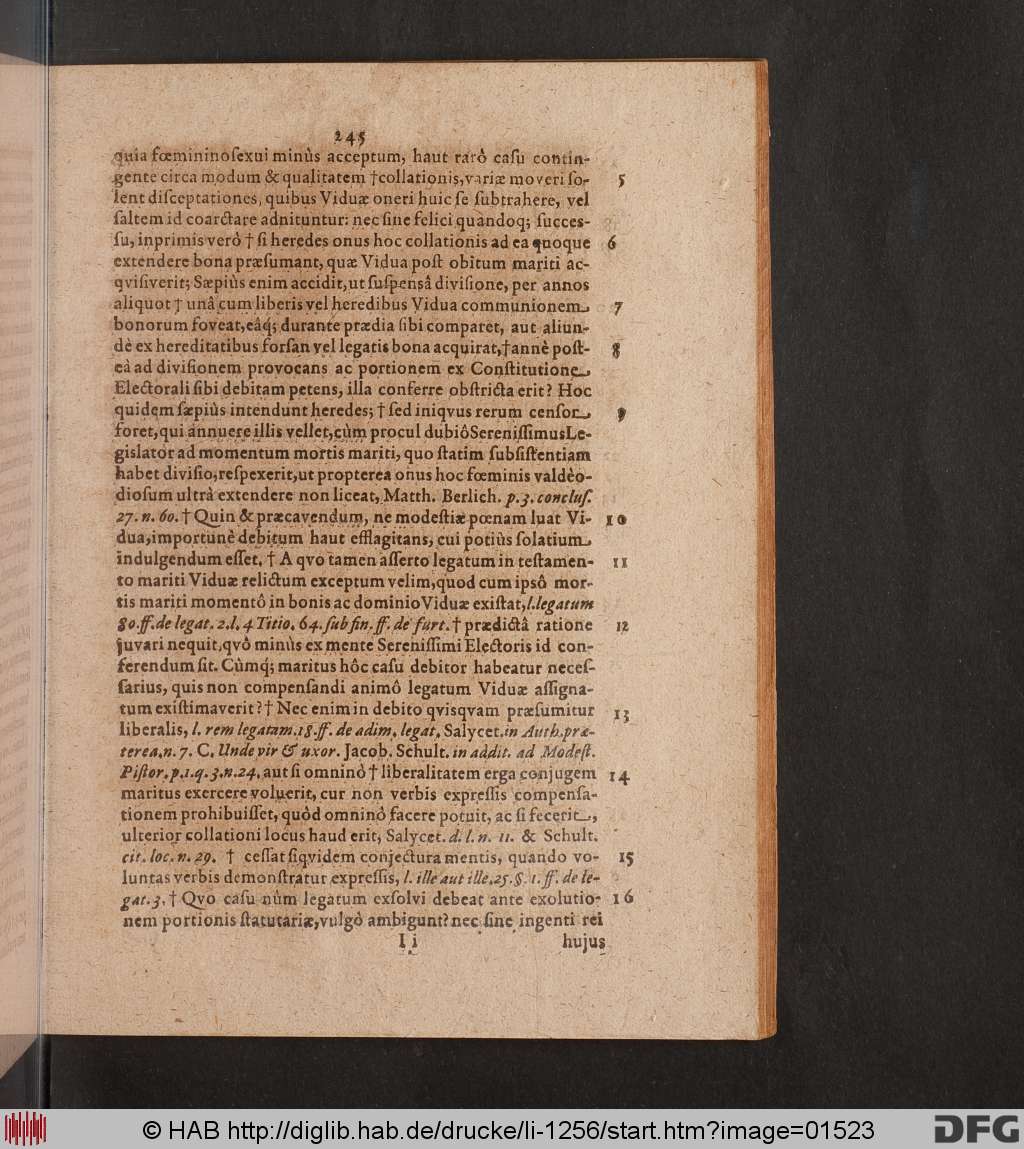 245
quia fœmininoſexui minùs acceptum, haut rarò caſu contin-
gente circa modum & qualitatem † collationis, variæ moveri ſo- 5
lent diſceptationes, quibus Viduæ oneri huic ſe ſubtrahere, vel
ſaltem id coarctare adnituntur: nec ſine felici quàndoq; ſucceſ-
ſu, inprimis verò † ſi heredes onus hoc collationis ad ea quoque 6
extendere bona præſumant, quæ Vidua poſt obitum mariti ac-
qviſiverit; Sæpiùs enim accidit, ut ſuſpensâ diviſione, per annos
aliquot † unâ cum liberis vel heredibus Vidua communionem 7
bonorum foveat, eâq; durante prædia ſibi comparet, aut aliun-
dè ex hereditatibus forſan vel legatis bona acquirat, † annè poſt- 8
eà ad diviſionem provocans ac portionem ex Conſtitutione
Electorali ſibi debitam petens, illa conferre obſtricta erit? Hoc
quidem ſæpiùs intendunt heredes; † ſed iniqvus rerum cenſor 9
foret, qui annuere illis vellet, cùm procul dubiô SereniſſimusLe-
gislator ad momentum mortis mariti, quo ſtatim ſubſiſtentiam
habet diviſio, reſpexerit, ut propterea onus hoc fœminis valdèo-
dioſum ultrà extendere non liceat, Matth. Berlich. p. 3. concluſ.
27. n. 60. † Quin & præcavendum, ne modeſtiæ pœnam luat Vi- 10
dua, importunè debitum haut efflagitans, cui potiùs ſolatium
indulgendum eſſet. † A qvo tamen aſſerto legatum in teſtamen- 11
to mariti Viduæ relictum exceptum velim, quod cum ipsô mor-
tis mariti momentô in bonis ac dominio Viduæ exiſtat, l. legatum
80. ff. de legat. 2. l. 4 Titio. 64. ſub fin. ff. de furt. † prædictâ ratione 12
juvari nequit, qvô minùs ex mente Sereniſſimi Electoris id con-
ferendum ſit. Cùmq; maritus hôc caſu debitor habeatur neceſ-
ſarius, quis non compenſandi animô legatum Viduæ aſſigna-
tum exiſtimaverit? † Nec enim in debito qvisqvam præſumitur 13
liberalis, l. rem legatam. 18. ff. de adim. legat. Salycet. in Auth. præ-
terea. n. 7. C. Unde vir & uxor. Jacob. Schult. in addit. ad Modeſt.
Piſtor. p. 1. q. 3. n. 24. aut ſi omninò † liberalitatem erga conjugem 14
maritus exercere voluerit, cur non verbis expreſſis compenſa-
tionem prohibuiſſet, quòd omninò facere potuit, ac ſi fecerit,
ulterior collationi locus haud erit, Salycet. d. l. n. 11. & Schult.
cit. loc. n. 29. † ceſſat ſiqvidem conjectura mentis, quando vo- 15
luntas verbis demonſtratur expreſſis, l. ille aut ille. 25. §. 1. ff. de le-
gat. 3. † Qvo caſu nùm legatum exſolvi debeat ante exolutio- 16
nem portionis ſtatutariæ, vulgò ambigunt? nec ſine ingenti rei
I i hujus
© HAB http://diglib.hab.de/drucke/li-1256/start.htm?image=01523
DFG